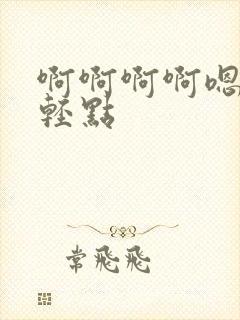 啊啊啊啊嗯
輕點
常飛飛